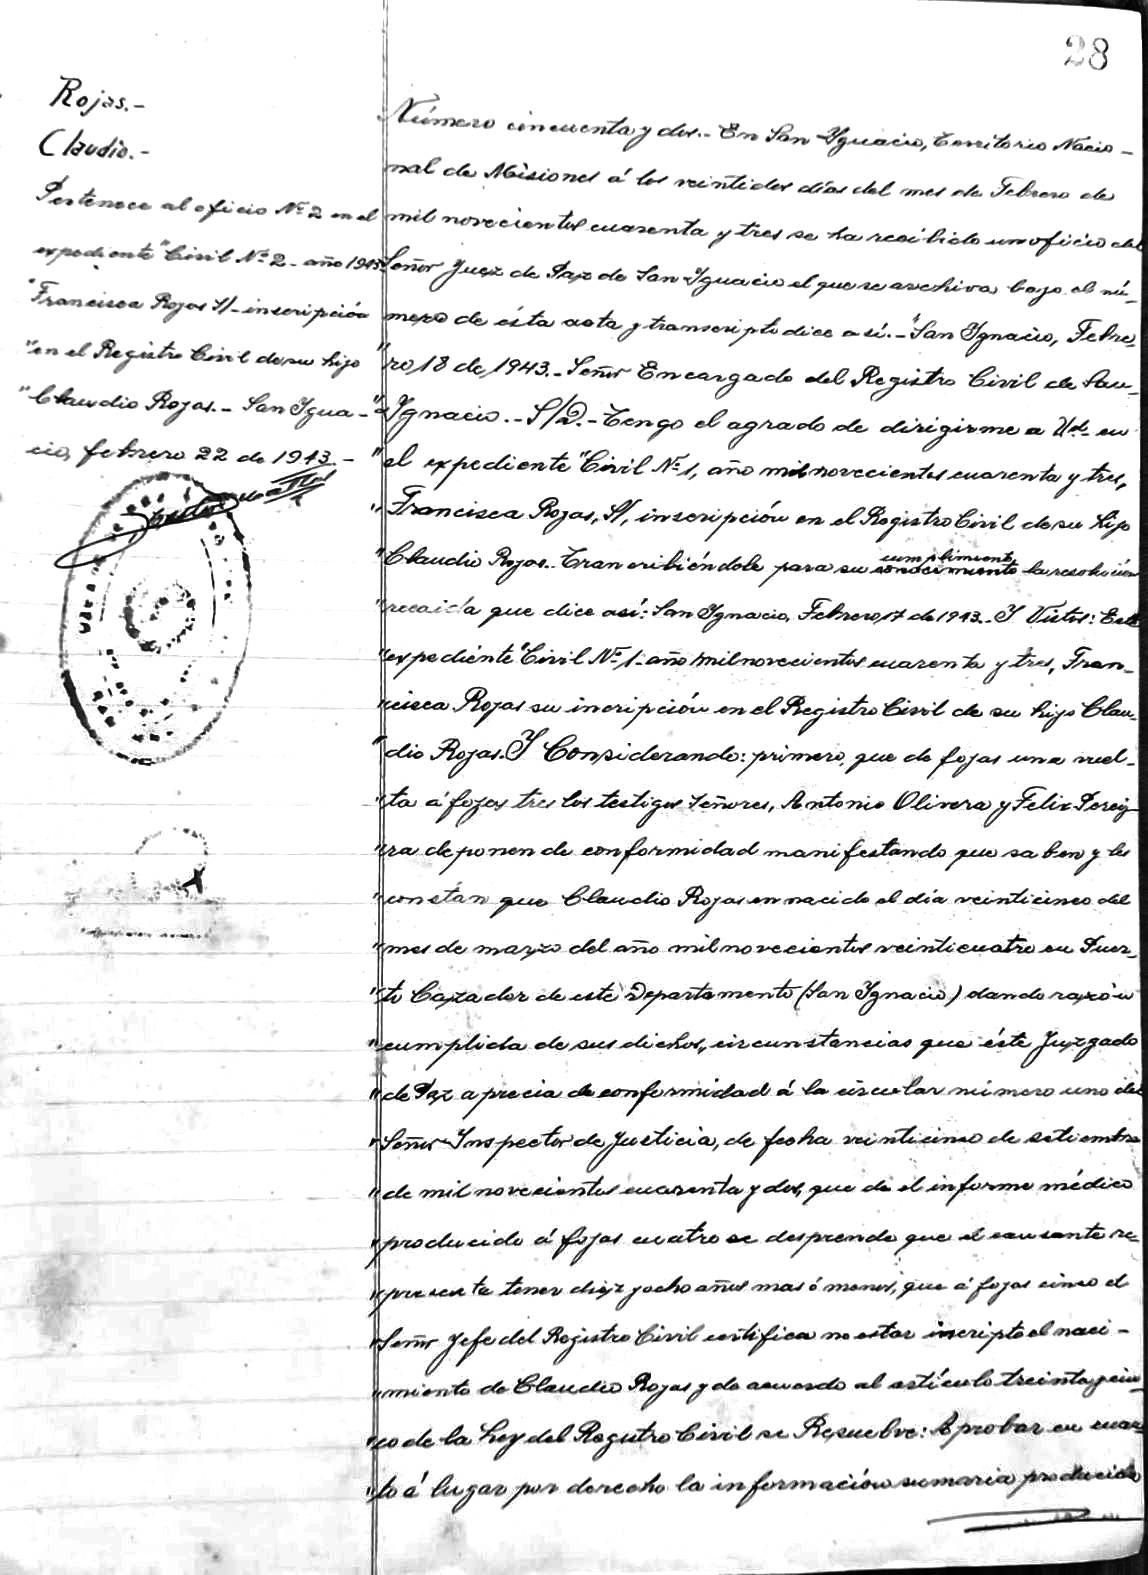 28
Rojas.-
Claudio.-
Pertenece al oficio Nº 2 en el
expediente "Civil Nº 2 - año 1943
"Francisca Rojas S/- inscripción
"en el Registro Civil de su hijo
"Claudio Rojas.- San Igna-
cio, febrero 22 de 1943.-
Número cincuenta y dos.- En San Ygnacio, Territorio Nacio-
nal de Misiones á los veintidos días del mes de Febrero de
mil novecientos cuarenta y tres se ha recibido un oficio del
Señor Juez de Paz de San Ygnacio el que se archiva bajo el nú-
mero de ésta acta y transcripto dice así.- "San Ygnacio, Febre-
"ro, 18 de 1943.- Señor Encargado del Registro Civil de San
"Ygnacio.- S/D.- Tengo el agrado de dirigirme a Ud. en
"el expediente "Civil Nº 1, año mil novecientos cuarenta y tres,
"Francisca Rojas, S/, inscripción en el Registro Civil de su hijo
"Claudio Rojas.- Trancribiéndole para su conocimiento cumplimiento la resolución
"recaida que dice así: San Ygnacio, Febrero, 17 de 1943.- Y Vistos: Este
"expediénte "Civil Nº 1- año mil novecientos cuarenta y tres, Fran-
"cisca Rojas su incripción en el Registro Civil de su hijo Clau-
"dio Rojas. Y Considerando: primero, que de fojas una vuel-
"ta á fojas tres los testigos Señores, Antonio Olivera y Felix Perey-
"ra deponen de conformidad manifestando que saben y les
"constan que Claudio Rojas en nacido el día veinticinco del
"mes de marzo del año mil novecientos veinticuatro en Puer-
"to Cazador de este Departamento (San Ygnacio) dando razón
"cumplida de sus dichos, circunstancias que éste Juzgado
"de Paz aprecia de conformidad á la circular número uno del
"Señor Inspector de Justicia, de fecha veinticinco de setiembre
"de mil novecientos cuarenta y dos, que de el informe médico
"producido á fojas cuatro se desprende que el causante re-
"presenta tener diez y ocho años mas ó menos, que á fojas cinco el
"Señor Jefe del Registro Civil certifica no estar inscripto el naci-
"miento de Claudio Rojas y de acuerdo al artículo treinta y cin-
"co de la Ley del Registro Civil se Resuelve: Aprobar en cuan-
"to á lugar por derecho la información sumaria producida